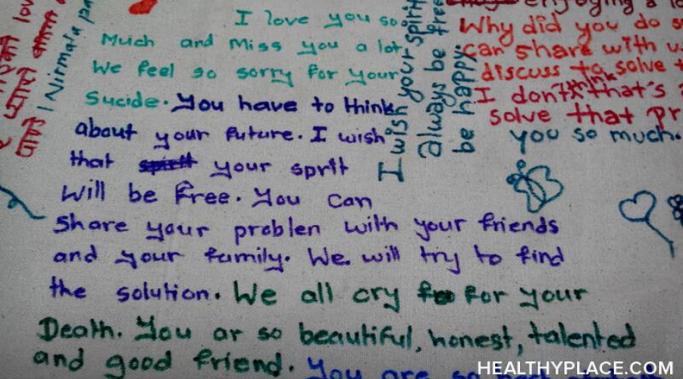 I love you so
Much and Miss you a lot.
We feel so sorry for your
Sucide. You have to think
about your future. I wish
that your sprit
will be free. You can
share your problen with your friends
and your family. We will try to find
the solution. We all cry for your
Death. You ar so beautiful, honest, talented
and good friend. You are so
I wish your spirit
always be free
be happy.
Why did you do s
can share with u
discuss to solve t
I don't think that's a
solve that Pr
you so much.
I Nirmala pa
HEALTHYPLACE.COM